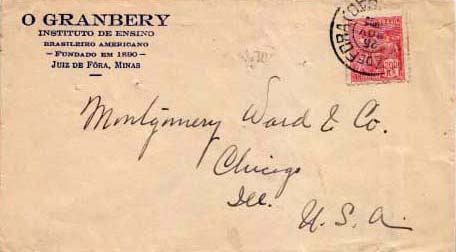 O GRANBERY
INSTITUTO DE ENSINO
BRASILEIRO AMERICANO
— FUNDADO EM 1890 —
JUIZ DE FÓRA, MINAS
Montgomery Ward & Co.
Chicago
Ill.
U. S. A.